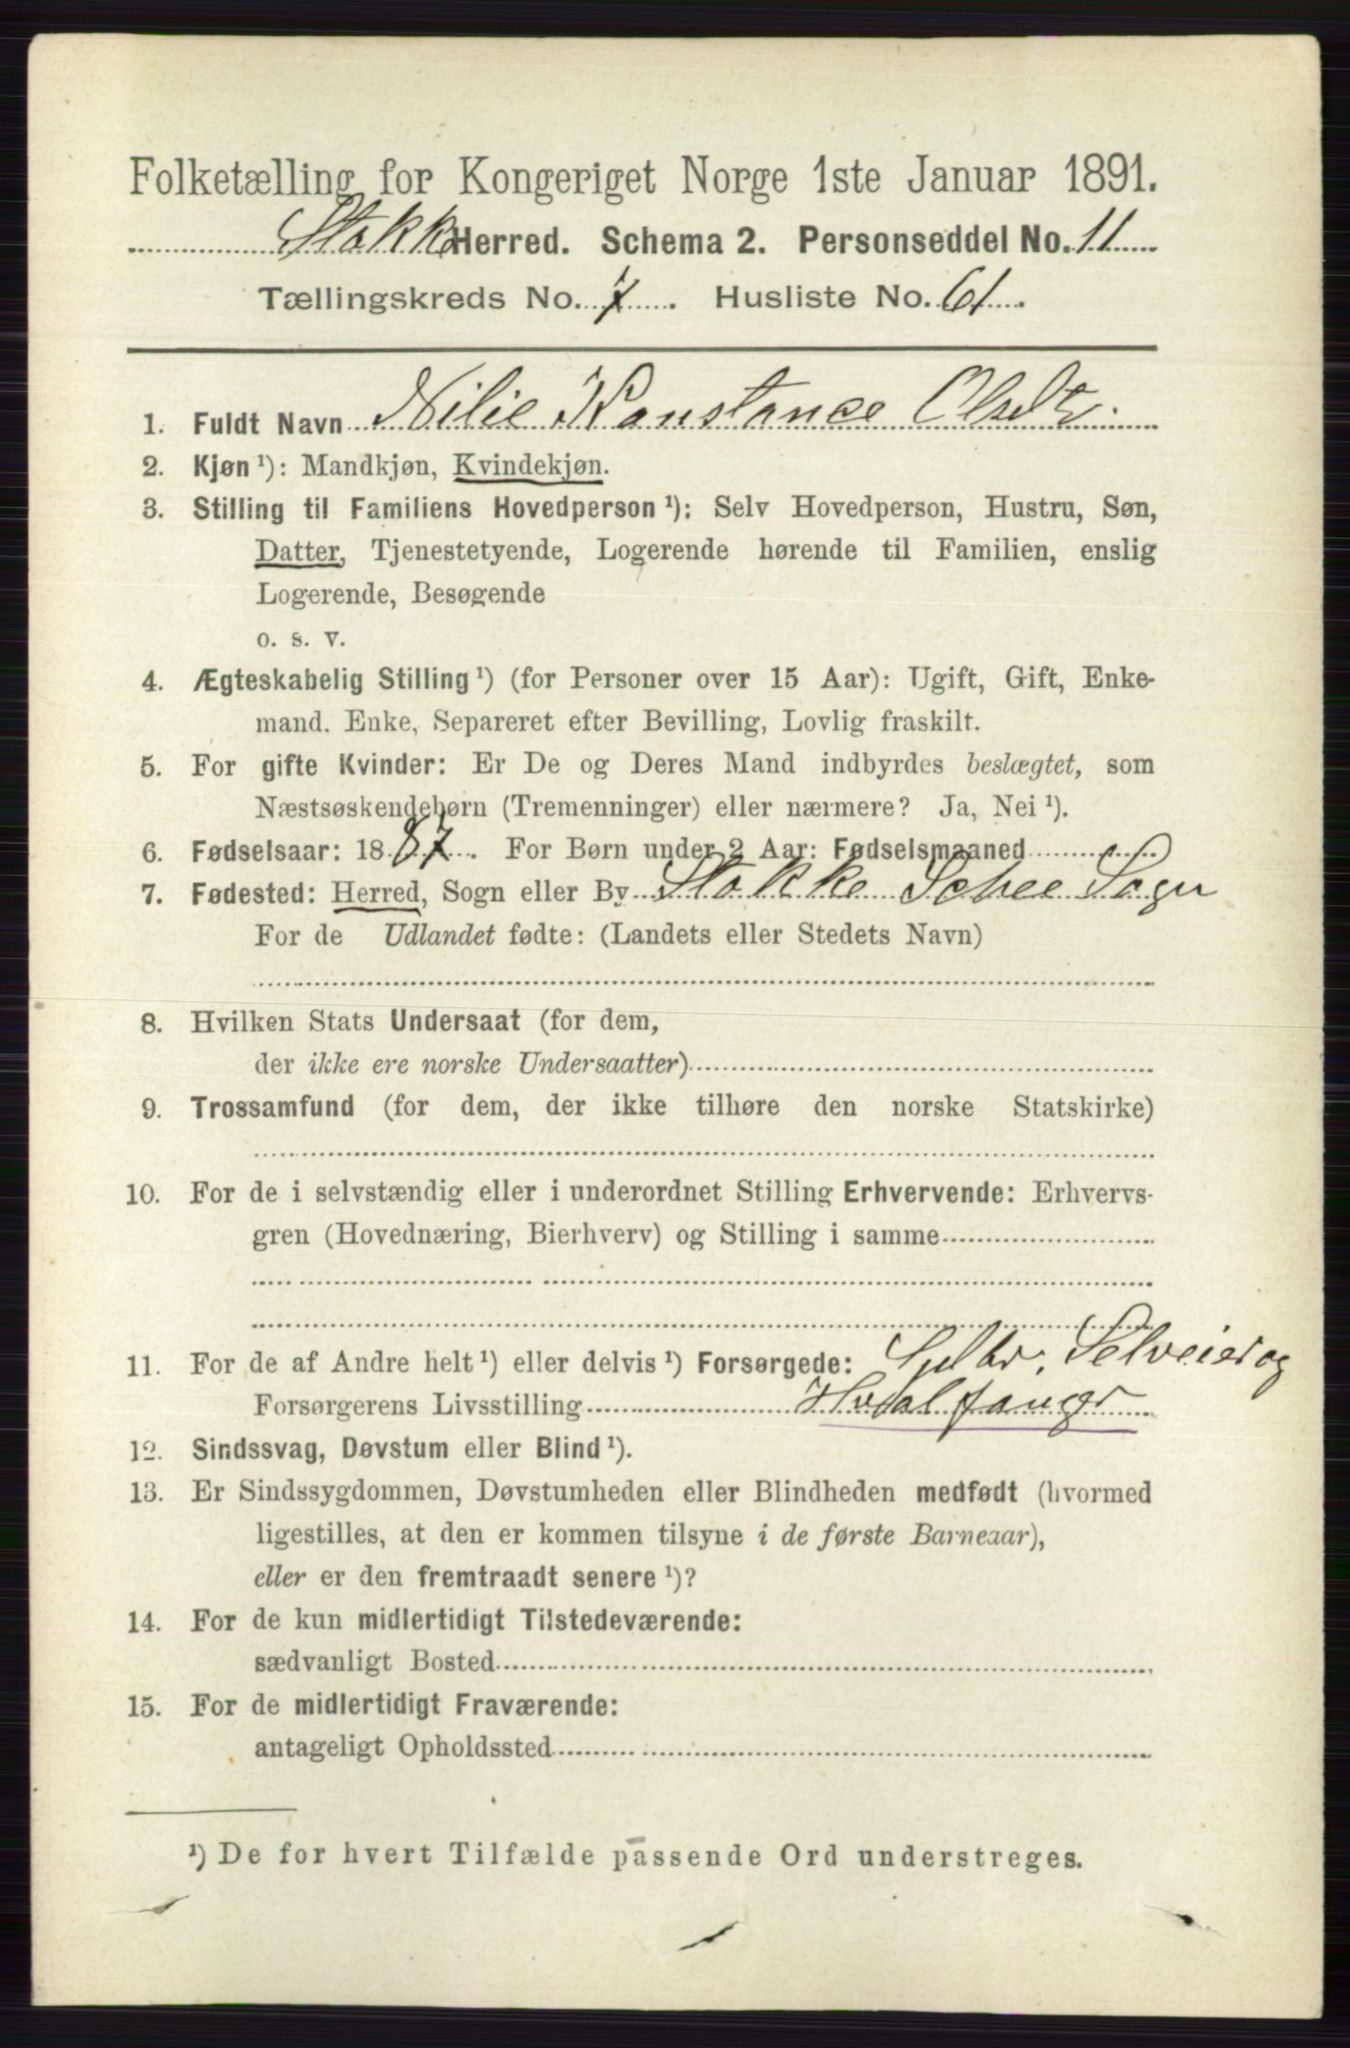 Folketælling for Kongeriget Norge 1ste Januar 1891.
Stokke Herred. Schema 2. Personseddel No. 11
Tællingskreds No. 7. Husliste No. 61.
1. Fuldt Navn Nilie Konstance Olsdtr.
2. Kjøn ¹): Mandkjøn, Kvindekjøn.
3. Stilling til Familiens Hovedperson ¹): Selv Hovedperson, Hustru, Søn,
Datter, Tjenestetyende, Logerende hørende til Familien, enslig
Logerende, Besøgende
o. s. v.
4. Ægteskabelig Stilling ¹) (for Personer over 15 Aar): Ugift, Gift, Enke-
mand. Enke, Separeret efter Bevilling, Lovlig fraskilt.
5. For gifte Kvinder: Er De og Deres Mand indbyrdes beslægtet, som
Næstsøskendebørn (Tremenninger) eller nærmere? Ja, Nei ¹).
6. Fødselsaar: 1887. For Børn under 2 Aar: Fødselsmaaned
7. Fødested: Herred, Sogn eller By Stokke Sogn
For de Udlandet fødte: (Landets eller Stedets Navn)
8. Hvilken Stats Undersaat (for dem,
der ikke ere norske Undersaatter)
9. Trossamfund (for dem, der ikke tilhøre den norske Statskirke)
10. For de i selvstændig eller i underordnet Stilling Erhvervende: Erhvervs-
gren (Hovednæring, Bierhverv) og Stilling i samme
11. For de af Andre helt ¹) eller delvis ¹) Forsørgede: Selveier og
Forsørgerens Livsstilling Hvalfanger
12. Sindssvag, Døvstum eller Blind ¹).
13. Er Sindssygdommen, Døvstumheden eller Blindheden medfødt (hvormed
ligestilles, at den er kommen tilsyne i de første Barneaar),
eller er den fremtraadt senere ¹)?
14. For de kun midlertidigt Tilstedeværende:
sædvanligt Bosted
15. For de midlertidigt Fraværende:
antageligt Opholdssted
¹) De for hvert Tilfælde passende Ord understreges.